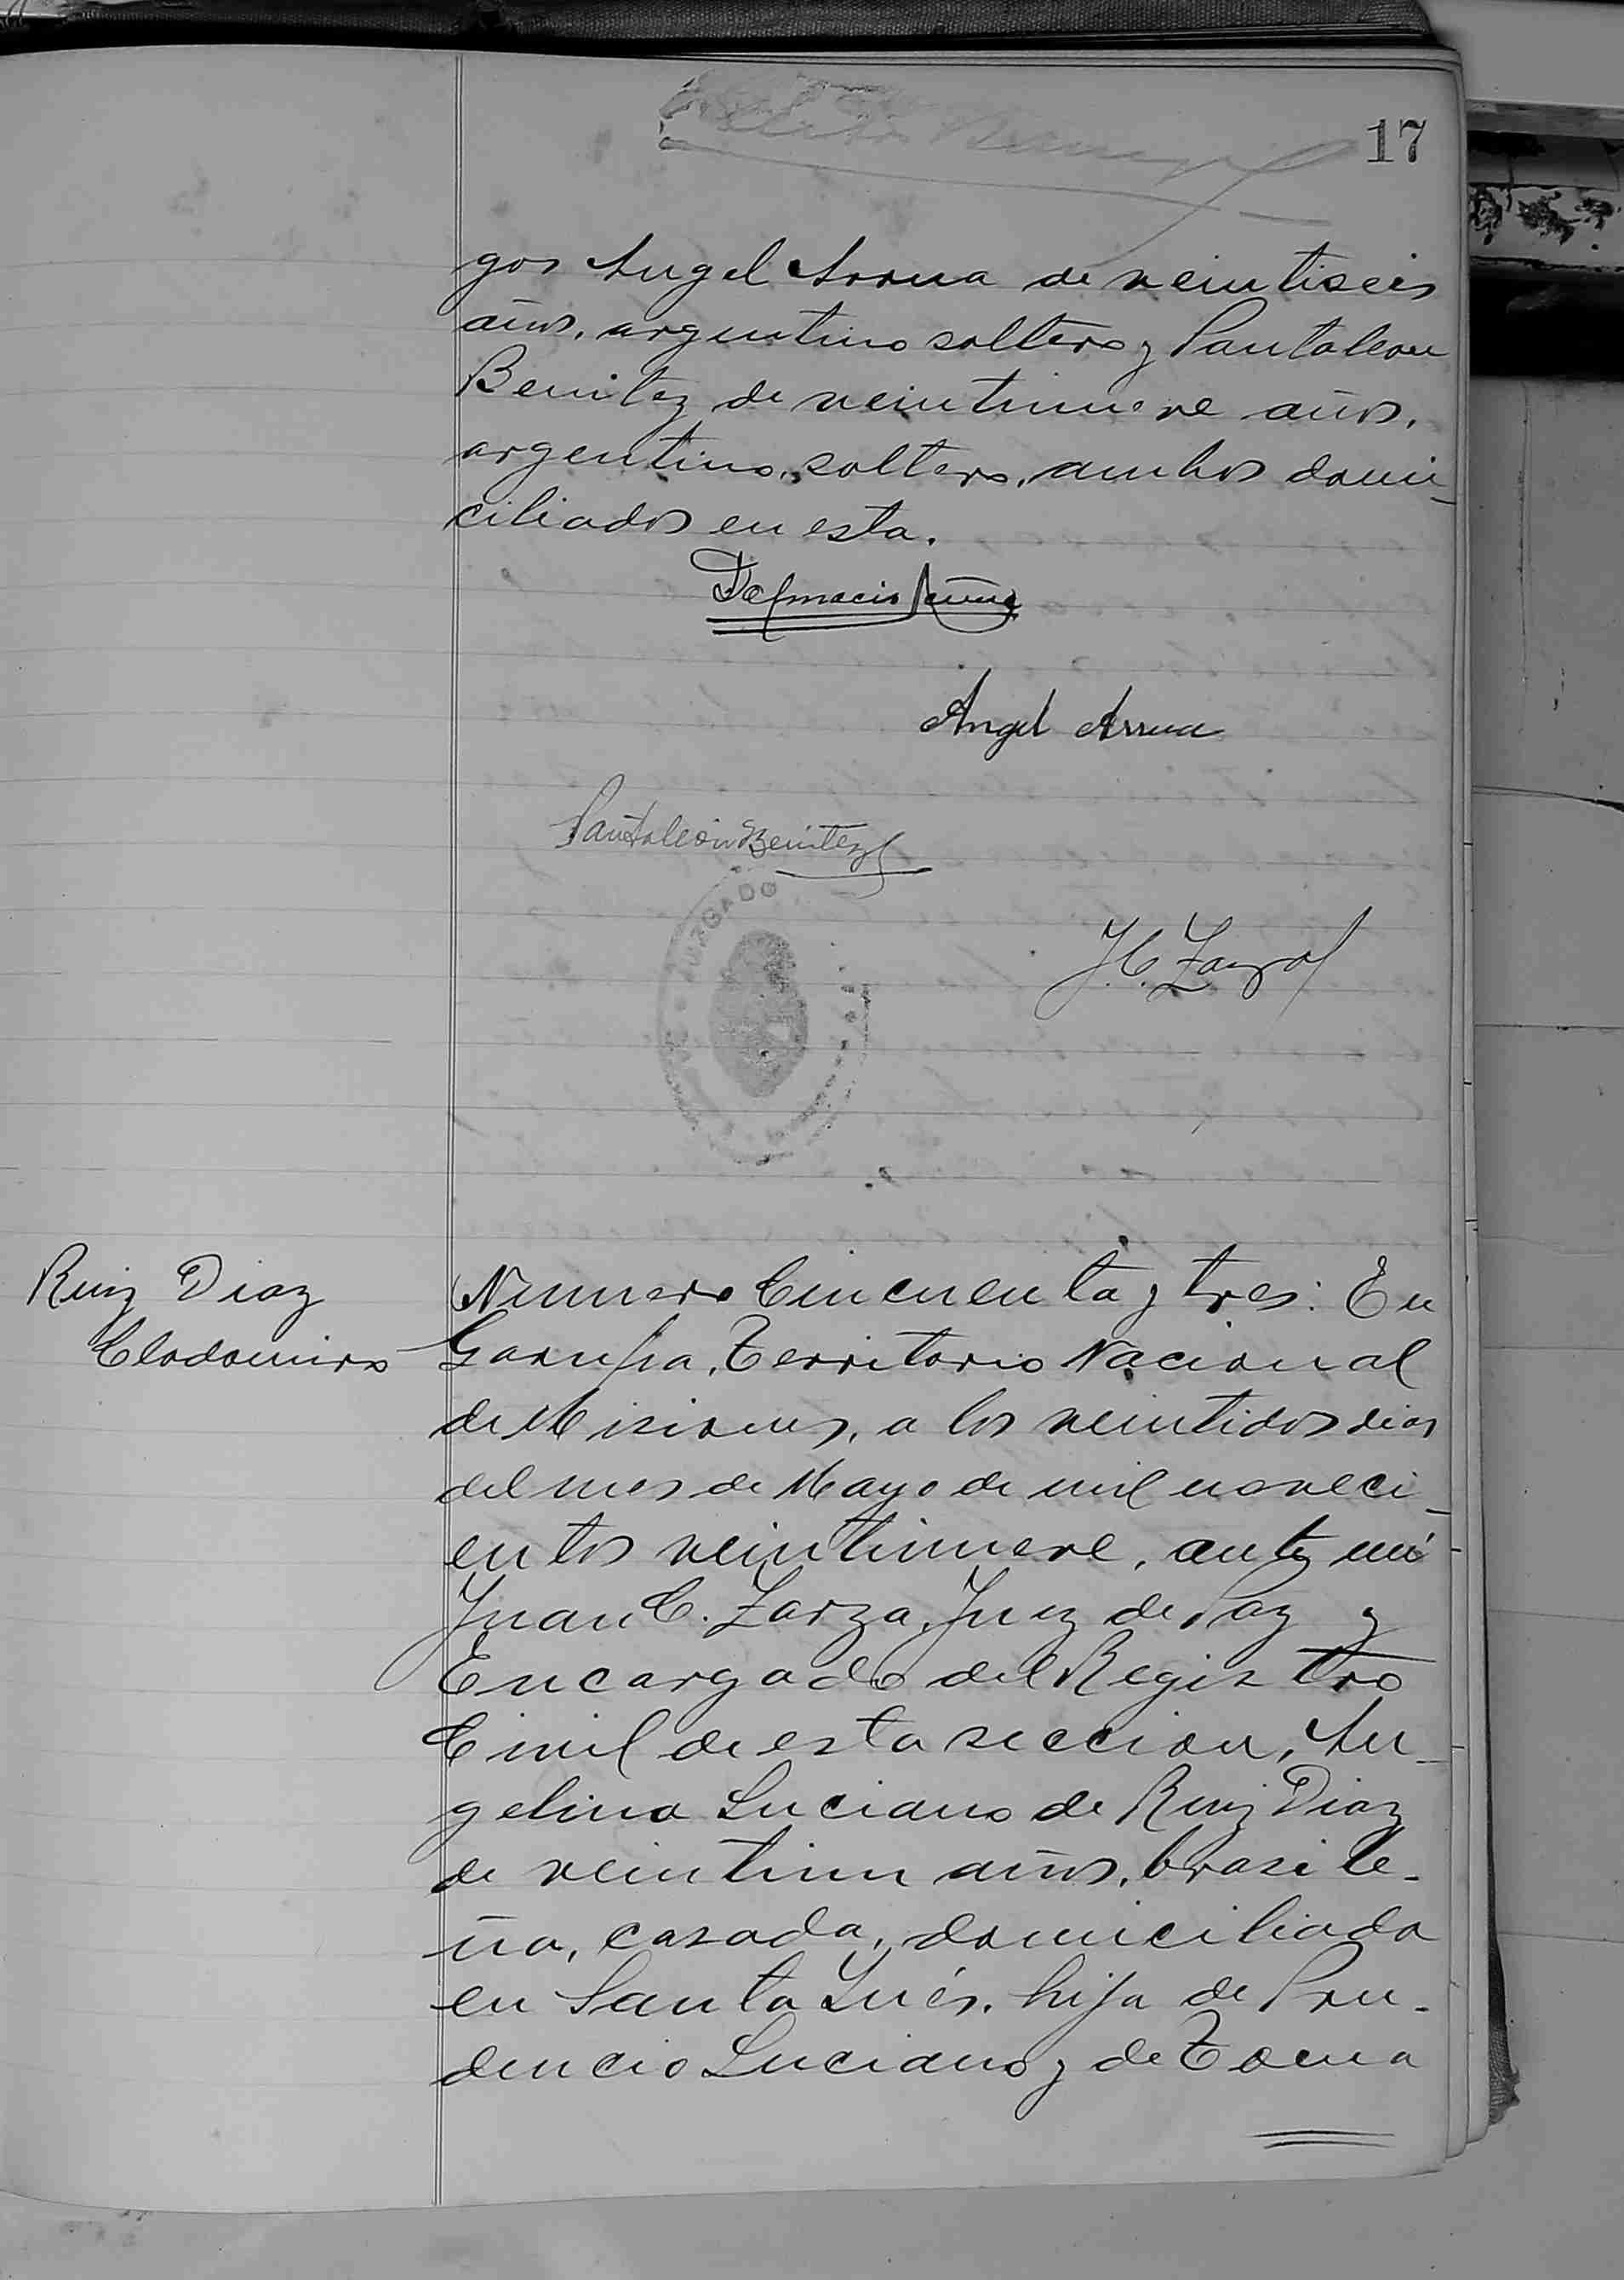 17
gos Angel Arrua de veintiseis
años, argentino soltero y Pantaleon
Benitez de veintinueve años,
argentino, soltero, ambos domi-
ciliados en esta.
Angel Arrua
Pantaleón Benitez
J. C. Zarza
JUZGADO
Ruiz Diaz
Clodomiro
Numero Cincuenta y tres: En
Garupa, Territorio Nacional
de Misiones, a los veintidos dias
del mes de Mayo de mil noveci-
entos veintinueve, ante mi
Juan C. Zarza, Juez de Paz y
Encargado del Registro
Civil de esta seccion, An-
gelina Luciano de Ruiz Diaz
de veintiun años, brasile-
ña, casada, domiciliada
en Santa Inés, hija de Pru-
dencio Luciano y de